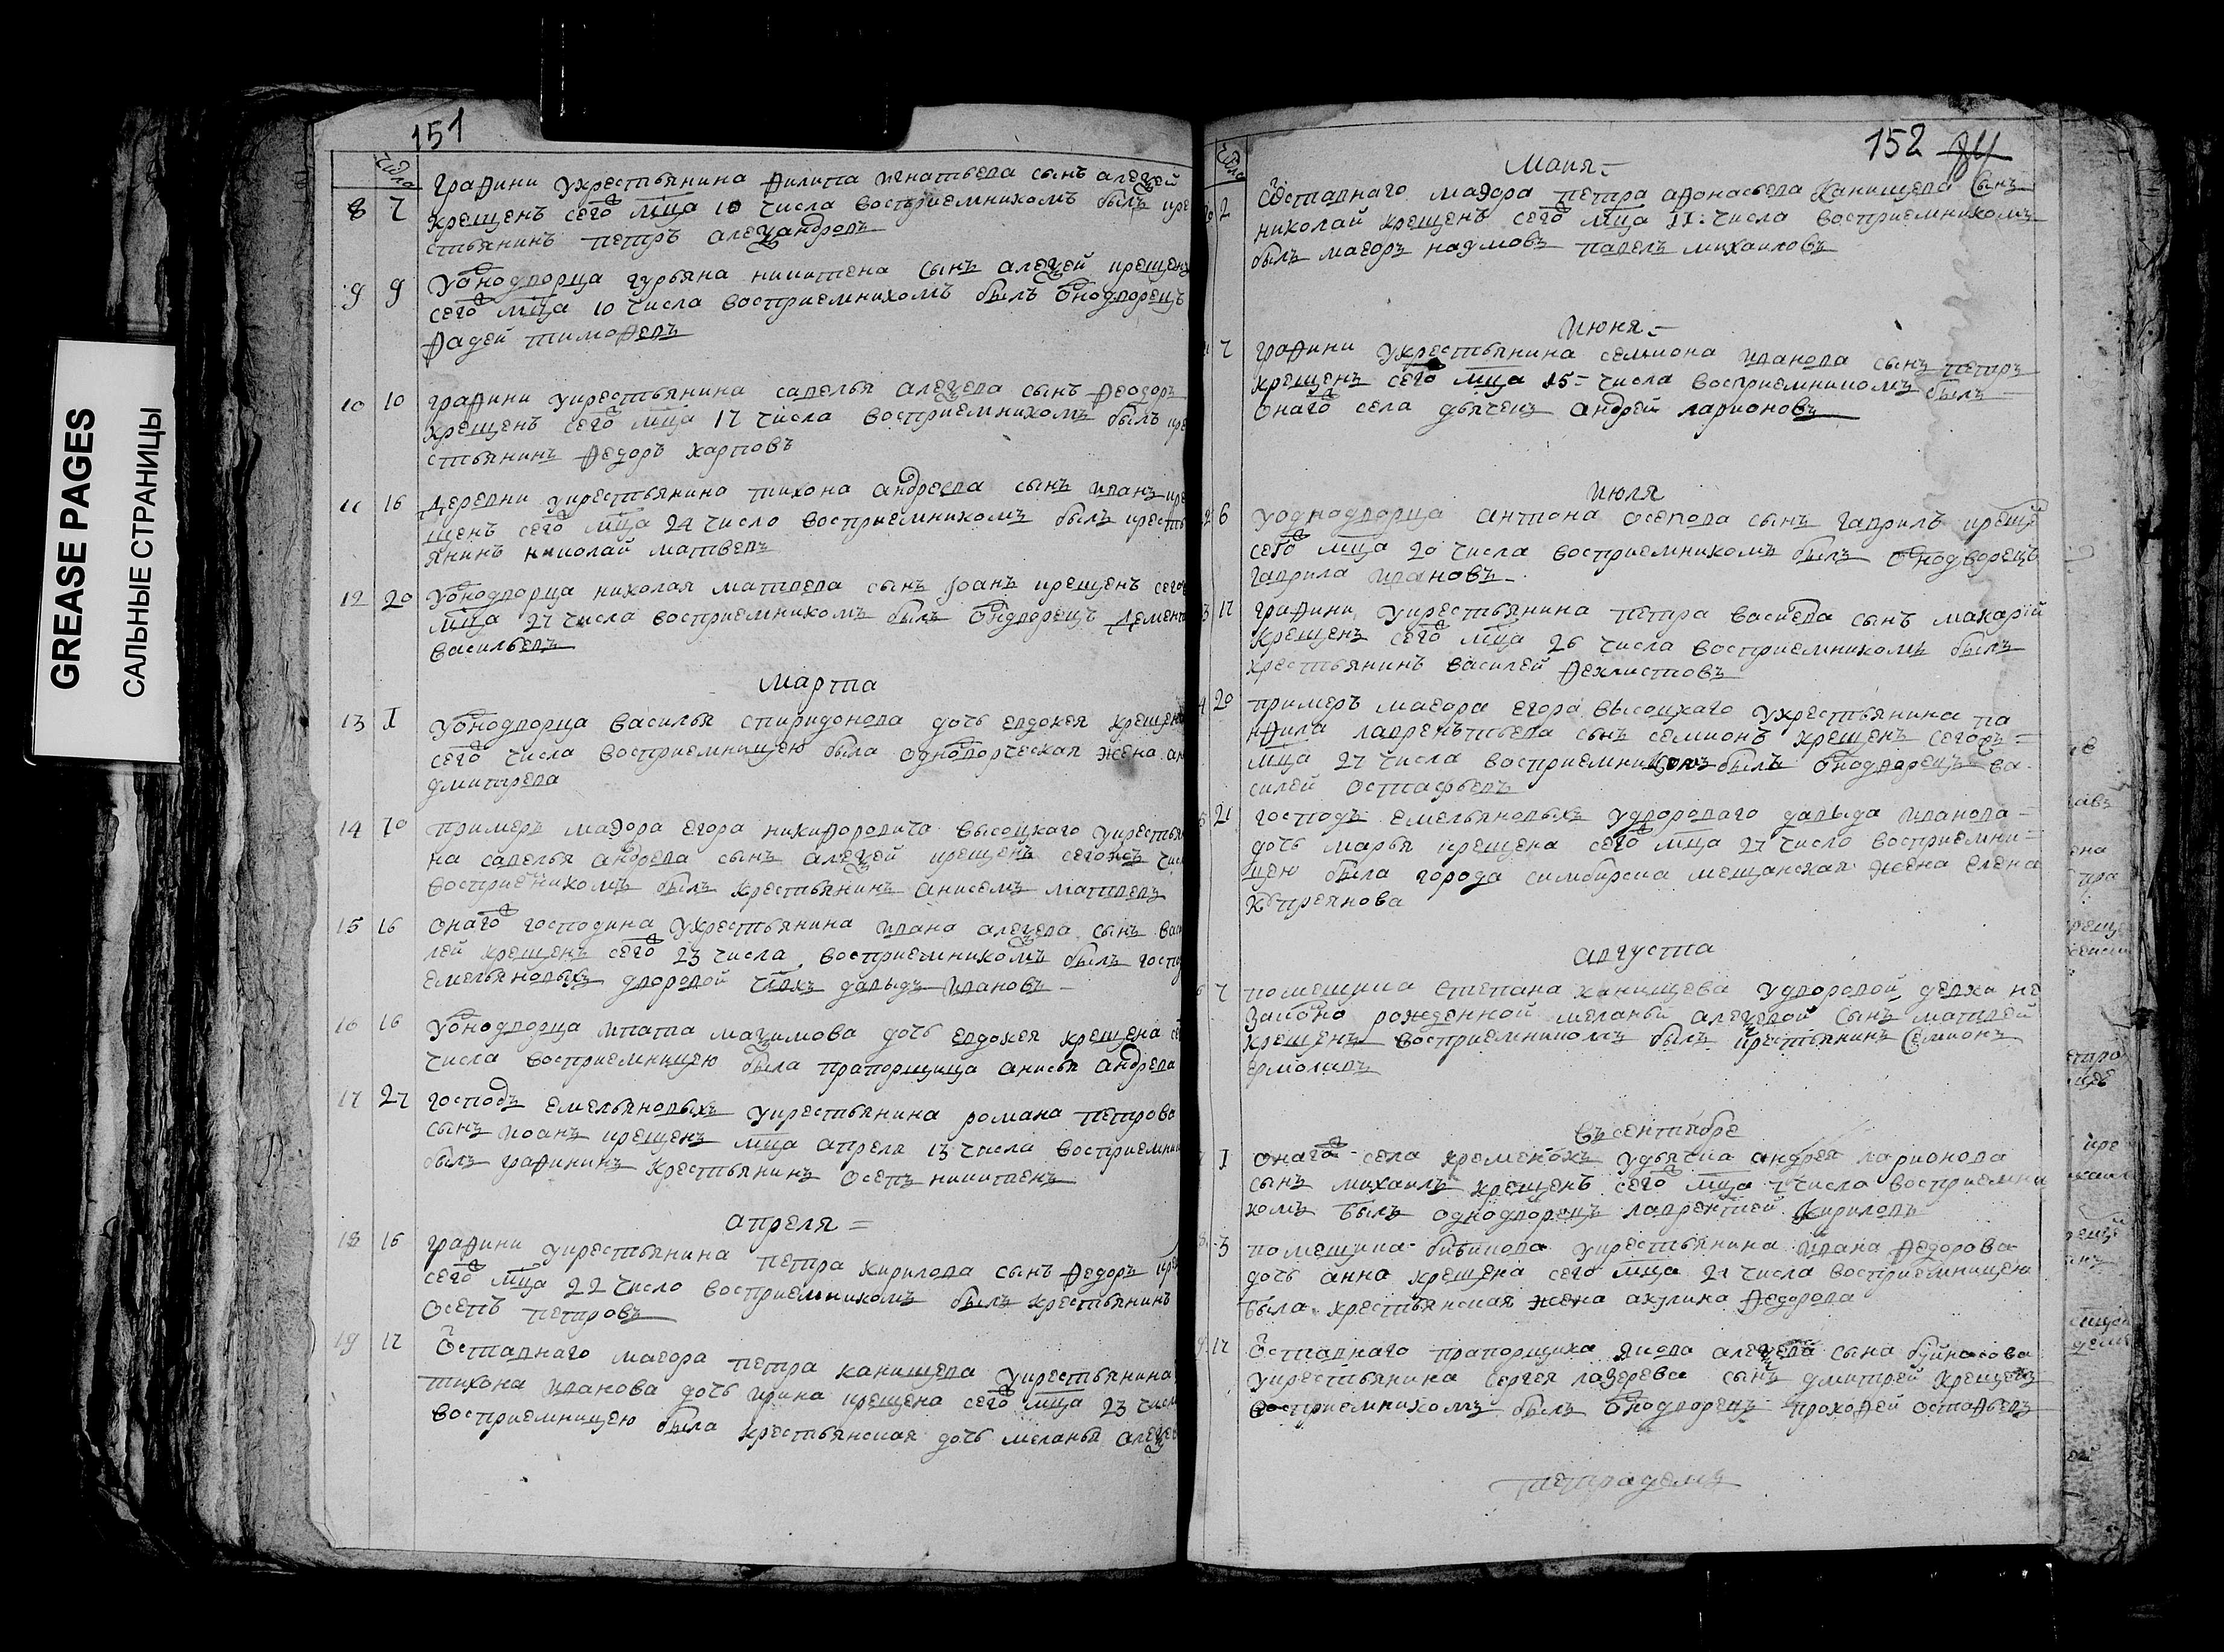 GREASE PAGES
САЛЬНЫЕ СТРАНИЦЫ
151
числа
8 7 графини укрестьянина филипа игнатьева сынъ алеѯей
крещенъ сего мца 10 числа восприемникомъ былъ кре
стьянинъ петръ алеѯандровъ
9 9 Уоднодворца гурьяна никитена сынъ алеѯей крещенъ
сего мца 10 числа восприемникомъ былъ однодворецъ
фадей тимофевъ
10 10 графини укрестьянина савелья алеѯева сынъ феодоръ
крещенъ сего мца 17 числа восприемникомъ былъ кре
стьянинъ федоръ карповъ
11 16 деревни укрестьянина тихона андреева сынъ иванъ кре
щенъ сего мца 24 число восприемникомъ былъ кресть
янинъ николай матвевъ
12 20 Уоднодворца николая матвева сынъ иоанъ крещенъ сего
мца 27 числа восприемникомъ былъ одндворецъ дементе
васильевъ
марта
13 1 Уоднодворца василья спиридонова дочь евдокея крещена
сего числа восприемницею была однодворческая жена ан
дмитрева
14 10 примеръ маэора егора никифоровича высоцкого укрестья
на савелья андрева сынъ алеѯей крещенъ сегожъ числ
восприемникомъ былъ крестьянинъ анисемъ матвевъ
15 16 онаго господина укрестьянина ивана алеѯева сынъ васи
лей крещенъ сего 23 числа восприемникомъ былъ госпо
емельяновыхъ дворовой члвкъ давыдъ ивановъ
16 16 Уоднодворца ипата маѯимова дочь евдокея крещена се
числа восприемницею была прапорщица анисья андрева
17 27 господъ емельяновыхъ укрестьянина романа петрова
сынъ иоанъ крещенъ мца апреля 13 числа восприемник
былъ графининъ крестьянинъ осепъ никитенъ
апреля
18 16 графини укрестьянина петра кирилова сынъ федоръ кре
сего мца 22 число восприемникомъ былъ крестьянинъ
осепъ петровъ
19 17 Отставнаго маеора петра канищева укрестьянина
тихона иванова дочь ирина крещена сего мца 23 числ
восприемницею была крестьянская дочь меланья алеѯев
152 84
числа
маия
2 Отставнаго маэора петра афонасьева канищева сынъ
николай крещенъ сего мца 11 числа восприемникомъ
былъ маеоръ наумовъ павелъ михаиловъ
июня
7 графини укрестьянина семиона иванова сынъ петръ
крещенъ сего мца 15 числа восприемникомъ былъ
онаго села дьяченъ андрей ларионовъ
июля
6 Уоднодворца антона осепова сынъ гаврилъ креще
сего мца 20 числа восприемникомъ былъ однодворецъ
гаврила ивановъ
17 графини укрестьянина петра васиева сынъ макарий
крещенъ сего мца 26 числа восприемникомъ былъ
крестьянинъ василей фехлистовъ
20 примеръ маеора егора высоцкаго укрестьянина па
нфила лаврентьева сынъ семионъ крещенъ сегожъ
мца 27 числа восприемникомъ былъ однодворецъ ва
силей остафьевъ
21 господъ емельяновыхъ удвороваго давыда иванова
дочь марья крещена сего мца 27 число восприемни
цею была города симбирска мещанская жена елена
купреянова
августа
7 помещика степана канищева удворовой девки не
законо рожденной меланьи алеѯевой сынъ матвей
крещенъ восприемникомъ былъ крестьянинъ семионъ
ермолаевъ
въ сентябре
1 онаго села кременокъ удьячка андрея ларионова
сынъ михаилъ крещенъ сего мца 7 числа восприемни
комъ былъ однодворецъ лаврентией кириловъ
3 помещика бибикова укрестьянина ивана федорова
дочь анна крещена сего мца 21 числа восприемницею
была крестьянская жена акулина федорова
17 Отставнаго прапорщика якова алеѯева сына буйносова
укрестьянина сергея лазерева сынъ дмитрей крещенъ
восприемникомъ былъ однодворецъ прокофей остафьевъ